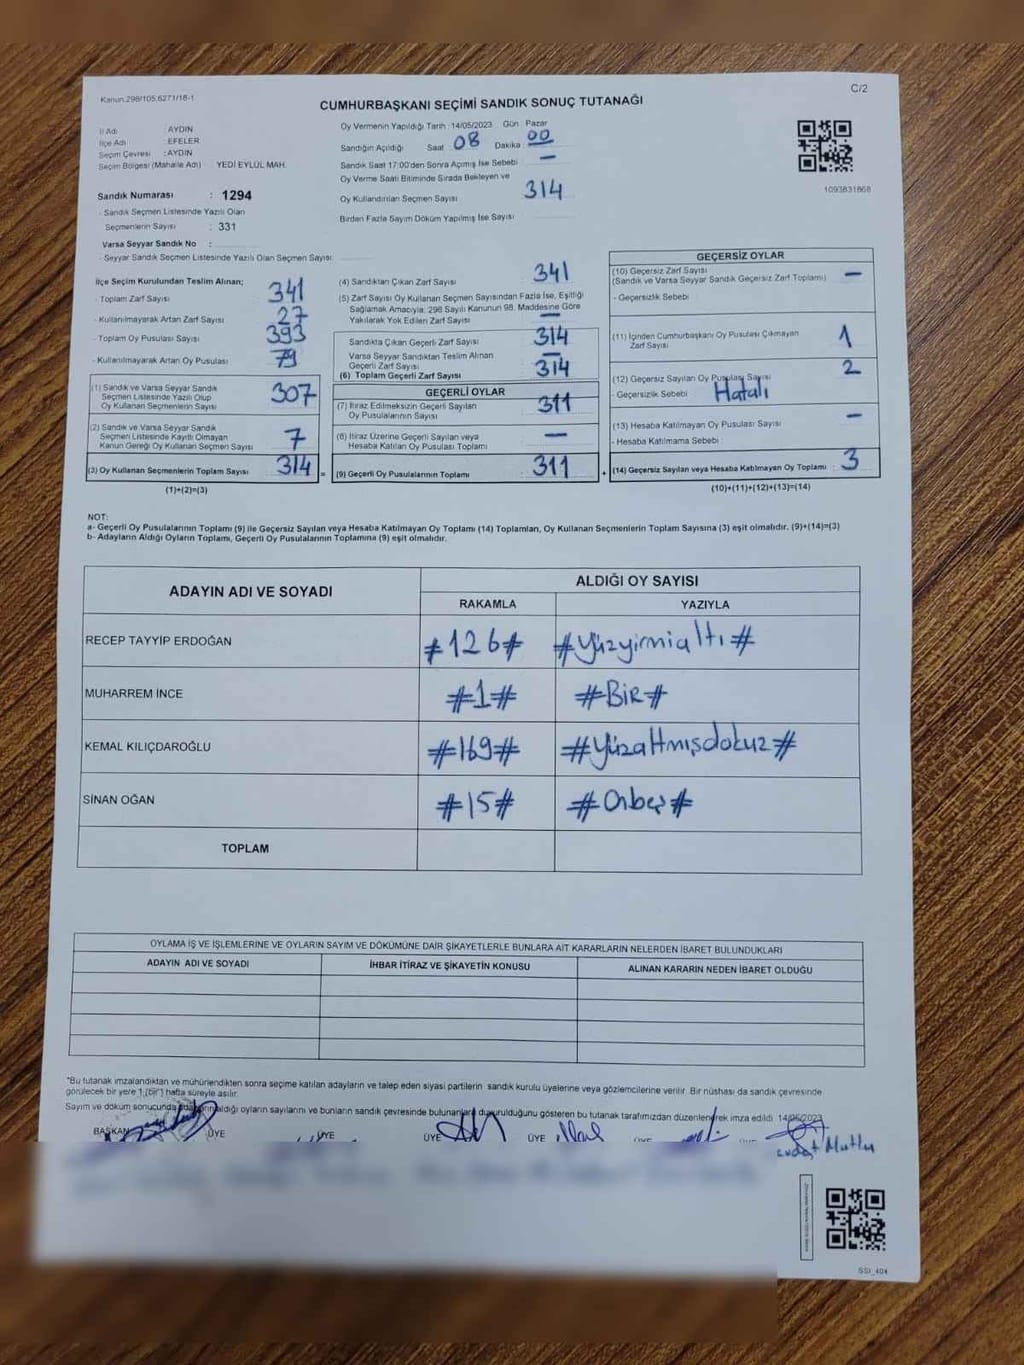 Kanun.298/105.6271/18-1
C/2
CUMHURBAŞKANI SEÇİMİ SANDIK SONUÇ TUTANAĞI
İl Adı : AYDIN
İlçe Adı : EFELER
Seçim Çevresi : AYDIN
Seçim Bölgesi (Mahalle Adı) : YEDİ EYLÜL MAH.
Oy Vermenin Yapıldığı Tarih :14/05/2023 Gün Pazar
Sandığın Açıldığı Saat 08 Dakika 00
Sandık Saat 17:00'den Sonra Açılmış İse Sebebi —
Oy Verme Saati Bitiminde Sırada Bekleyen ve
Oy Kullandırılan Seçmen Sayısı 314
Birden Fazla Sayım Döküm Yapılmış İse Sayısı
1093831868
Sandık Numarası : 1294
- Sandık Seçmen Listesinde Yazılı Olan
Seçmenlerin Sayısı : 331
Varsa Seyyar Sandık No :
- Seyyar Sandık Seçmen Listesinde Yazılı Olan Seçmen Sayısı:
İlçe Seçim Kurulundan Teslim Alınan;
- Toplam Zarf Sayısı 341
- Kullanılmayarak Artan Zarf Sayısı 27
- Toplam Oy Pusulası Sayısı 393
- Kullanılmayarak Artan Oy Pusulası 79
(1) Sandık ve Varsa Seyyar Sandık
Seçmen Listesinde Yazılı Olup
Oy Kullanan Seçmenlerin Sayısı 307
(2) Sandık ve Varsa Seyyar Sandık
Seçmen Listesinde Kayıtlı Olmayan
Kanun Gereği Oy Kullanan Seçmen Sayısı 7
(3) Oy Kullanan Seçmenlerin Toplam Sayısı 314 =
(1)+(2)=(3)
(4) Sandıktan Çıkan Zarf Sayısı 341
(5) Zarf Sayısı Oy Kullanan Seçmen Sayısından Fazla İse, Eşitliği
Sağlamak Amacıyla; 298 Sayılı Kanunun 98. Maddesine Göre
Yakılarak Yok Edilen Zarf Sayısı —
Sandıkta Çıkan Geçerli Zarf Sayısı 314
Varsa Seyyar Sandıktan Teslim Alınan
Geçerli Zarf Sayısı —
(6) Toplam Geçerli Zarf Sayısı 314
GEÇERLİ OYLAR
(7) İtiraz Edilmeksizin Geçerli Sayılan
Oy Pusulalarının Sayısı 311
(8) İtiraz Üzerine Geçerli Sayılan veya
Hesaba Katılan Oy Pusulaları Toplamı —
(9) Geçerli Oy Pusulalarının Toplamı 311 +
GEÇERSİZ OYLAR
(10) Geçersiz Zarf Sayısı —
(Sandık ve Varsa Seyyar Sandık Geçersiz Zarf Toplamı)
- Geçersizlik Sebebi
(11) İçinden Cumhurbaşkanı Oy Pusulası Çıkmayan
Zarf Sayısı 1
(12) Geçersiz Sayılan Oy Pusulası Sayısı 2
- Geçersizlik Sebebi Hatalı
(13) Hesaba Katılmayan Oy Pusulası Sayısı —
- Hesaba Katılmama Sebebi :
(14) Geçersiz Sayılan veya Hesaba Katılmayan Oy Toplamı : 3
(10)+(11)+(12)+(13)=(14)
NOT:
a- Geçerli Oy Pusulalarının Toplamı (9) ile Geçersiz Sayılan veya Hesaba Katılmayan Oy Toplamı (14) Toplamları, Oy Kullanan Seçmenlerin Toplam Sayısına (3) eşit olmalıdır. (9)+(14)=(3)
b- Adayların Aldığı Oyların Toplamı, Geçerli Oy Pusulalarının Toplamına (9) eşit olmalıdır.
ADAYIN ADI VE SOYADI
ALDIĞI OY SAYISI
RAKAMLA YAZIYLA
RECEP TAYYİP ERDOĞAN #126# #Yüzyirmialtı#
MUHARREM İNCE #1# #BİR#
KEMAL KILIÇDAROĞLU #169# #Yüzaltmışdokuz#
SİNAN OĞAN #15# #Onbeş#
TOPLAM
OYLAMA İŞ VE İŞLEMLERİNE VE OYLARIN SAYIM VE DÖKÜMÜNE DAİR ŞİKAYETLERLE BUNLARA AİT KARARLARIN NELERDEN İBARET BULUNDUKLARI
ADAYIN ADI VE SOYADI İHBAR İTİRAZ VE ŞİKAYETİN KONUSU ALINAN KARARIN NEDEN İBARET OLDUĞU
"Bu tutanak imzalandıktan ve mühürlendikten sonra seçime katılan adayların ve talep eden siyasi partilerin sandık kurulu üyelerine veya gözlemcilerine verilir. Bir nüshası da sandık çevresinde
görülecek bir yere 1 (bir) hafta süreyle asılır.
Sayım ve döküm sonucunda adayların aldığı oyların sayılarını ve bunların sandık çevresinde bulunanlara duyurulduğunu gösteren bu tutanak tarafımızdan düzenlenerek imza edildi 14/05/2023
BAŞKAN ÜYE ÜYE ÜYE ÜYE
Mutlu
SSI_404